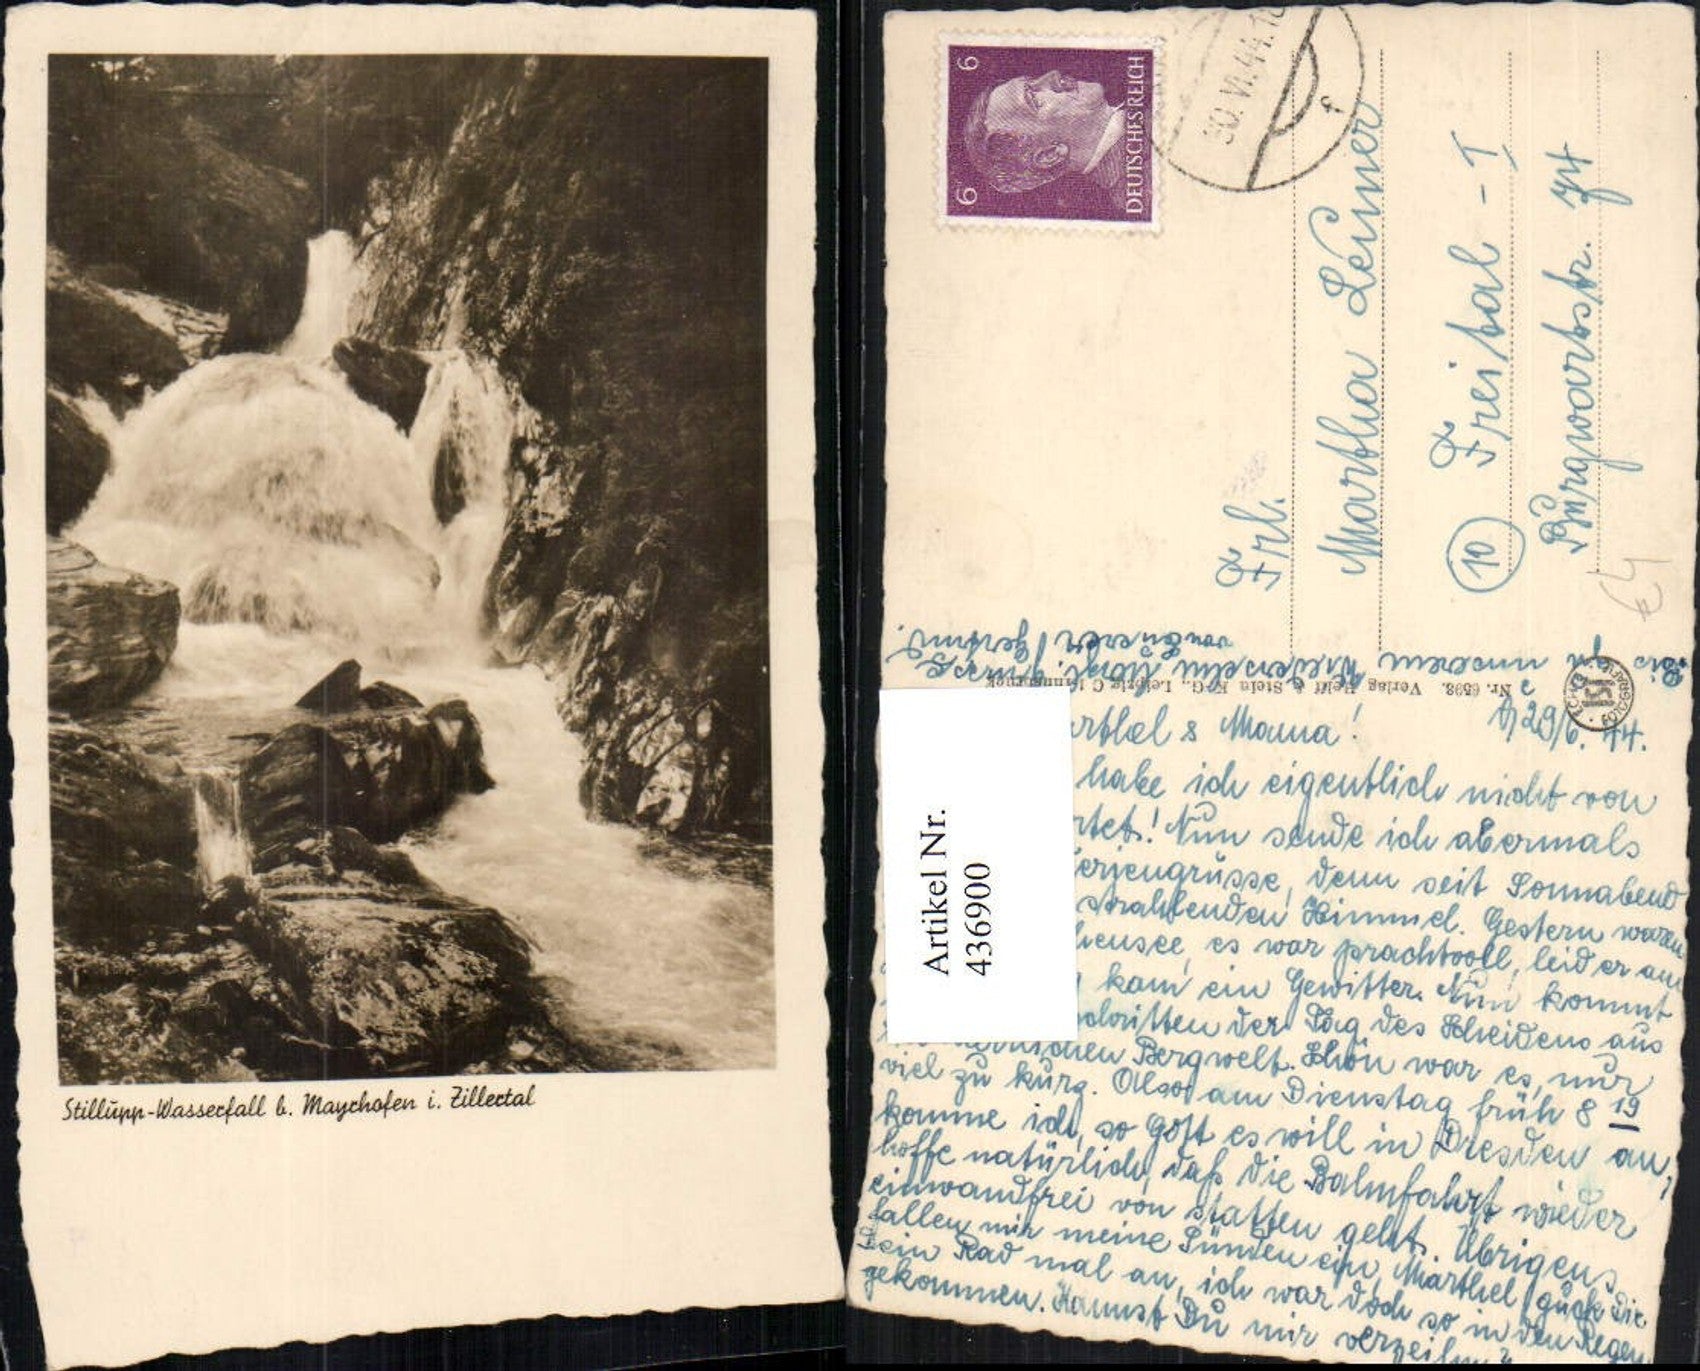 Stillupp-Wasserfall b. Mayrhofen i. Zillertal
6
6
DEUTSCHES REICH
30.VI.44.
Frl.
Martha Leimer
10 Freital - I
Burgwartstr. 74
€4
Artikel Nr.
436900
Nr. 6598. Verlag Helff & Stein K.G., Leipzig C 1
Bis zu unserem Wiedersehen
von Eurer
29/6. 44.
& Mama!
habe ich eigentlich nicht von
Nun sende ich abermals
denn seit Sonnabend
strahlenden Himmel. Gestern waren
es war prachtvoll, leider am
kam ein Gewitter. Nun kommt
der Tag des Scheidens aus
Bergwelt. Schön war es, nur
viel zu kurz. Also am Dienstag früh 8 19
komme ich, so Gott es will in Dresden an,
hoffe natürlich, daß die Bahnfahrt wieder
einwandfrei von statten geht. Übrigens
fallen mir meine Sünden ein, Marthel guck Dir
Dein Rad mal an, ich war doch so in den Regen
gekommen. Kannst Du mir verzeihen?